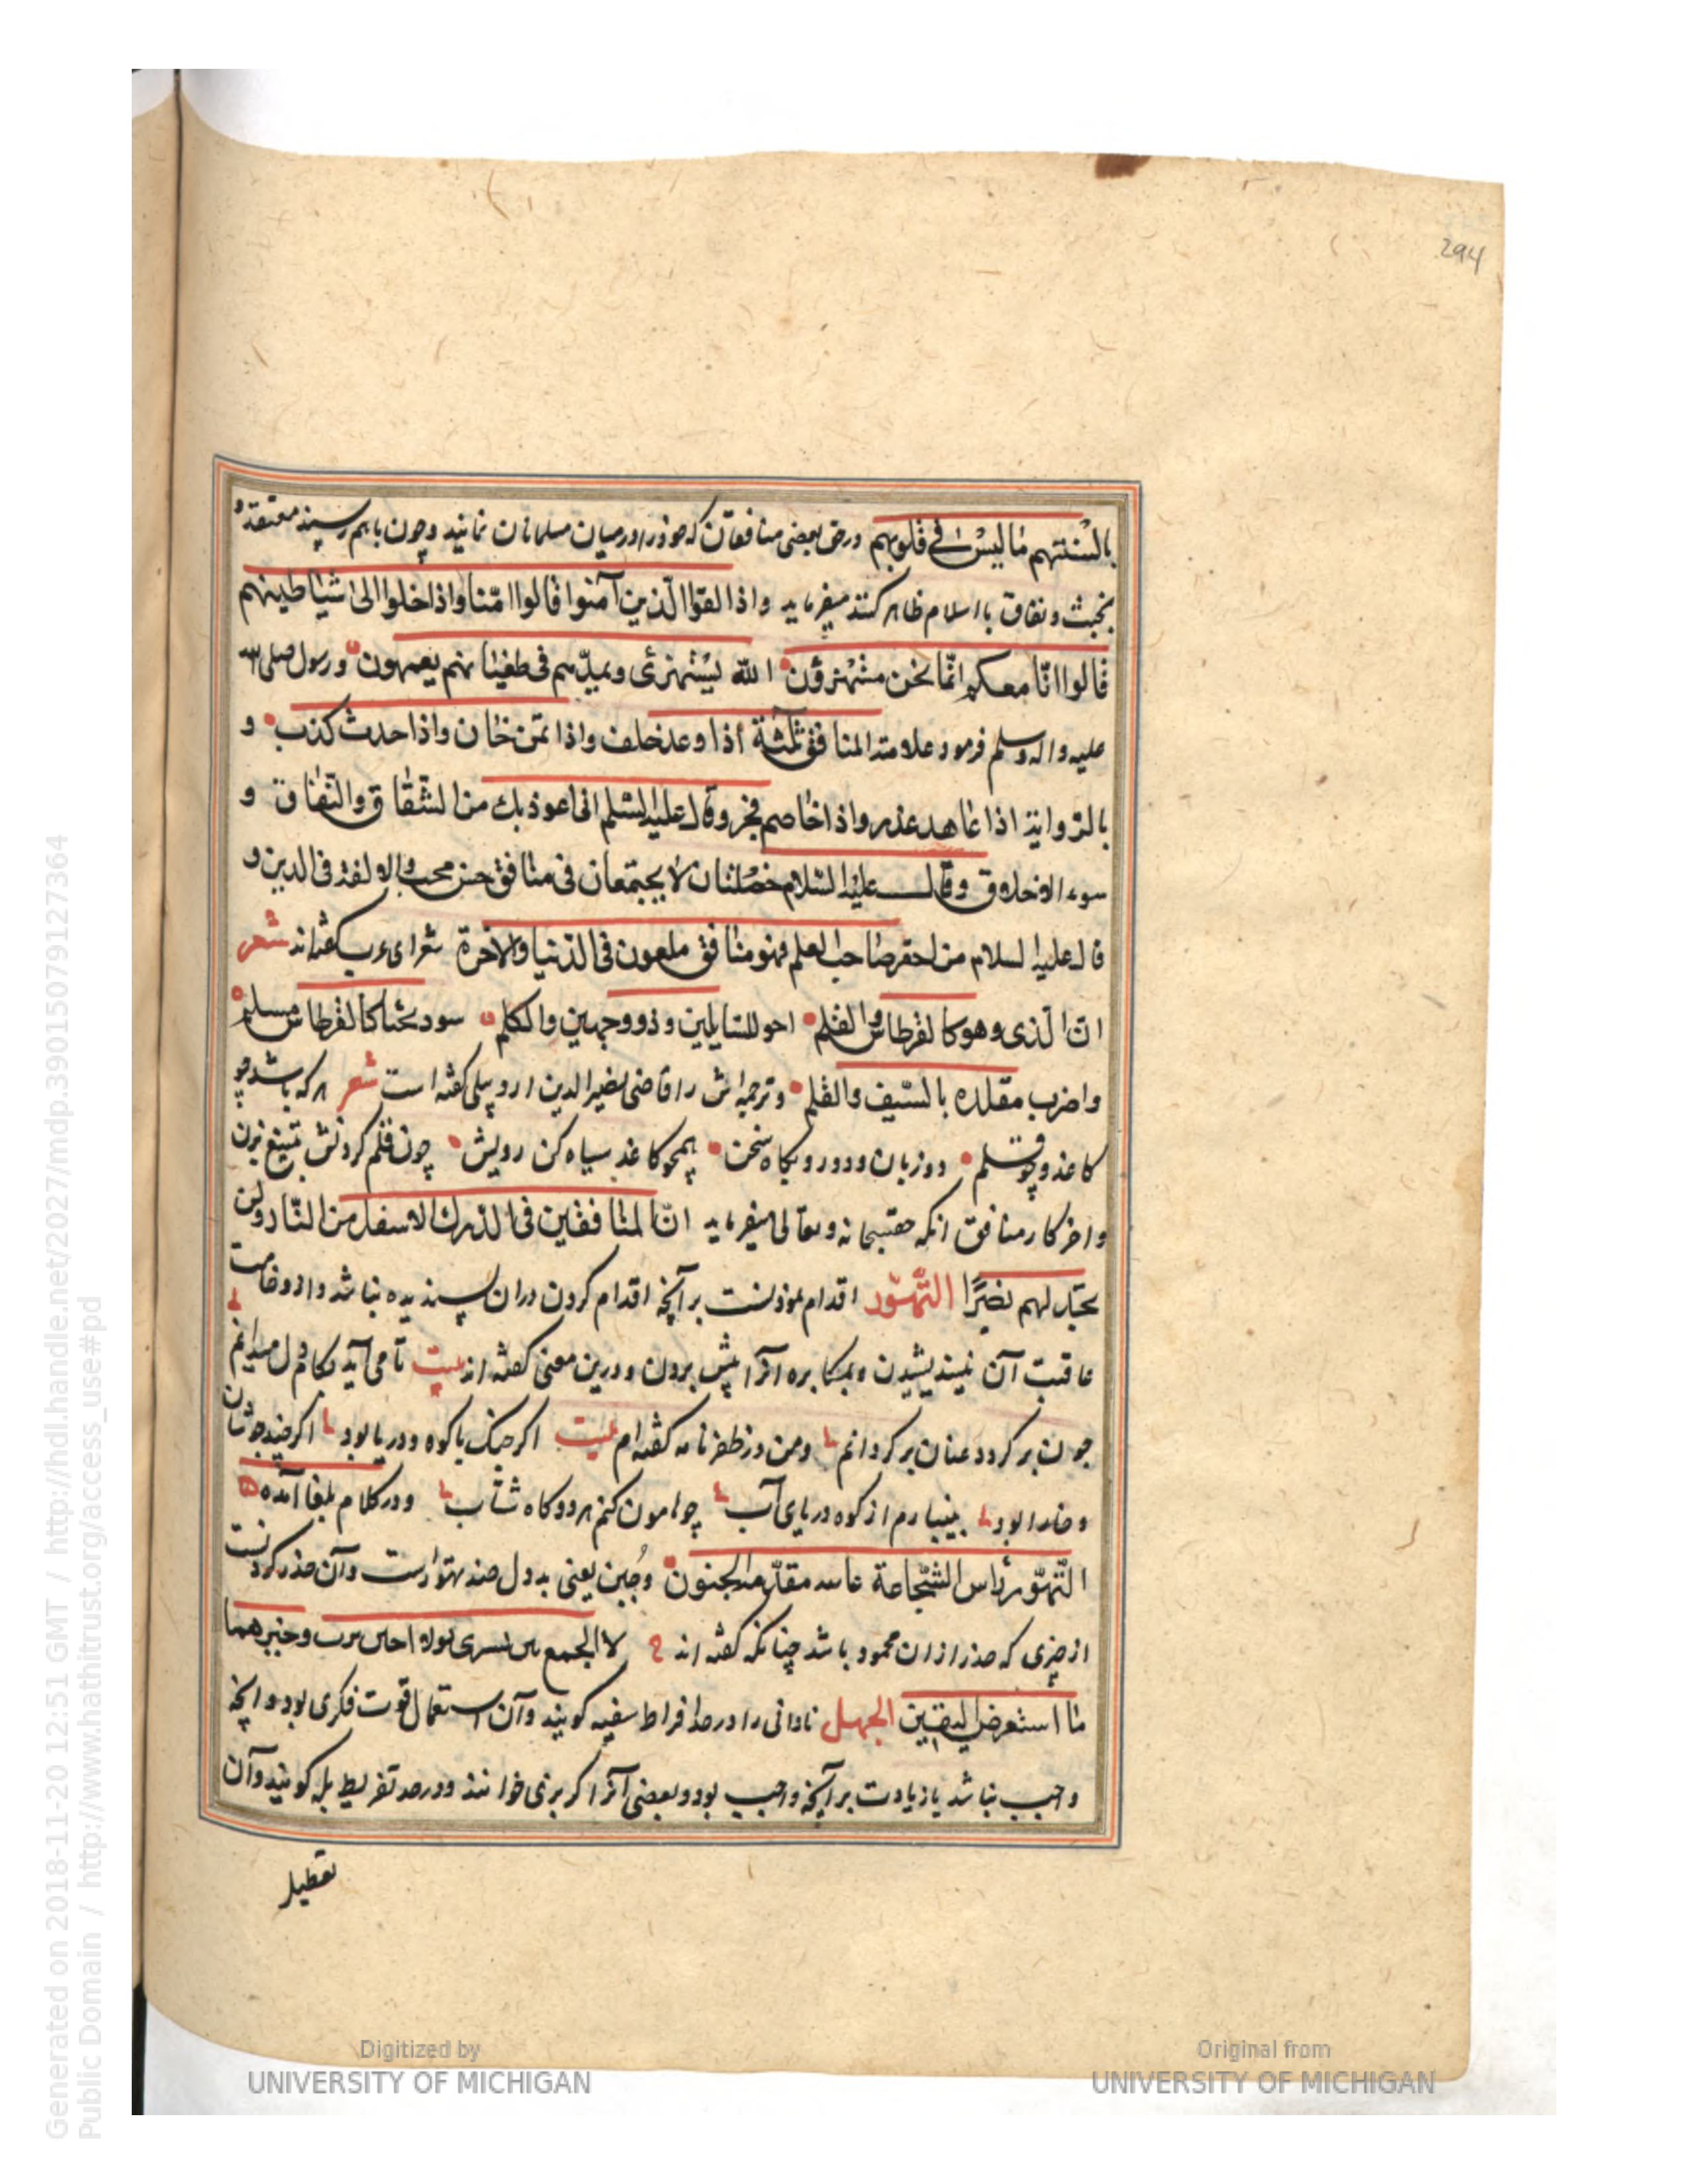 294
بالسنتهم ما ليس فی قلوبهم ودرحق بعضی منافقان که خود را درمیان مسلمانان نمایند وچون باهم رسیند معتقد و
بخبث ونفاق با اسلام ظاهر کنند میفرماید واذا لقوا الّذین آمنوا قالوا امّنا واذا خلوا الیٰ شیاطینهم
قالوا انّا معکم انّما نحن مستهزؤن الله یستهزیٔ بهم ویمدّهم فی طغیانهم یعمهون ورسول صلی الله
علیه واله وسلم فرمود علامة المنافق ثلثة اذا وعد خلف واذا تمن خان واذا حدث کذب و
بالروایة اذا عاهد غدر واذا خاصم فجر وقال علیه السّلم انی اعوذ بك من الشقاق والنفاق و
سوء الاخلاق وقال علیه السّلام خصلتان لا یجتمعان فی منافق حسن ولا فقه فی الدین و
قال علیه السلام من احقر صاحب العلم فهو منافق ملعون فی الدّنیا والاخرة شعرای عرب کفته اند شعر
انّ الّذی وهو کالقرطاس والقلم وذو وجهین والکلم سود کالقرطاس
واضرب مقلده بالسّیف والقلم وترجمه اش را قاضی نصیر الدین اردبیلی کفته است شعر هرکه باشد چو
کاغذ وچو قلم دو زبان ودورو بگاه سخن همچو کاغذ سیاه کن رویش چون قلم کردنش بتیغ بزن
واخر کار منافق انکه حقسبحانه وتعالی میفرماید انّ المنافقین فی الدّرك الاسفل من النّار ولن
تجد لهم نصیرًا التّهوّر اقدام نمودنست برآنچه اقدام کردن دران پسندیده نباشد واز وخامت
عاقبت آن نیندیشیدن وبمکابره آنرا پیش بردن ودرین معنی کفته اند بیت تا می آید بکام دل میرانم
چون برکردد عنان برکردانم ومن در ظفرنامه کفته ام بیت اکر جنک با کوه ودریا بود اکر چند جوشان
وخارا بود بینبارم از کوه دریای آب چو هامون کنم هر دو کاه شتاب ودر کلام بلغا آمده
التّهوّر رأس الشّجاعة الجنون وجبن یعنی بددل ضد تهوّرست وآن حذر کردنست
از چیزی که حذر ازان محمود باشد چنانکه کفته اند لا الجمع
ما استعرض الیقین الجهل نادانی را درحد افراط سفیه کویند وآن استعمال قوت فکری بود در آنچه
واجب نباشد یا زیادت برآنچه واجب بود وبعضی آنرا کربزی خوانند ودرحد تفریط بله کویند وآن
تعطیل
Generated on 2018-11-20 12:51 GMT / http://hdl.handle.net/2027/mdp.39015079127364
Public Domain / http://www.hathitrust.org/access_use#pd
Digitized by
UNIVERSITY OF MICHIGAN
Original from
UNIVERSITY OF MICHIGAN